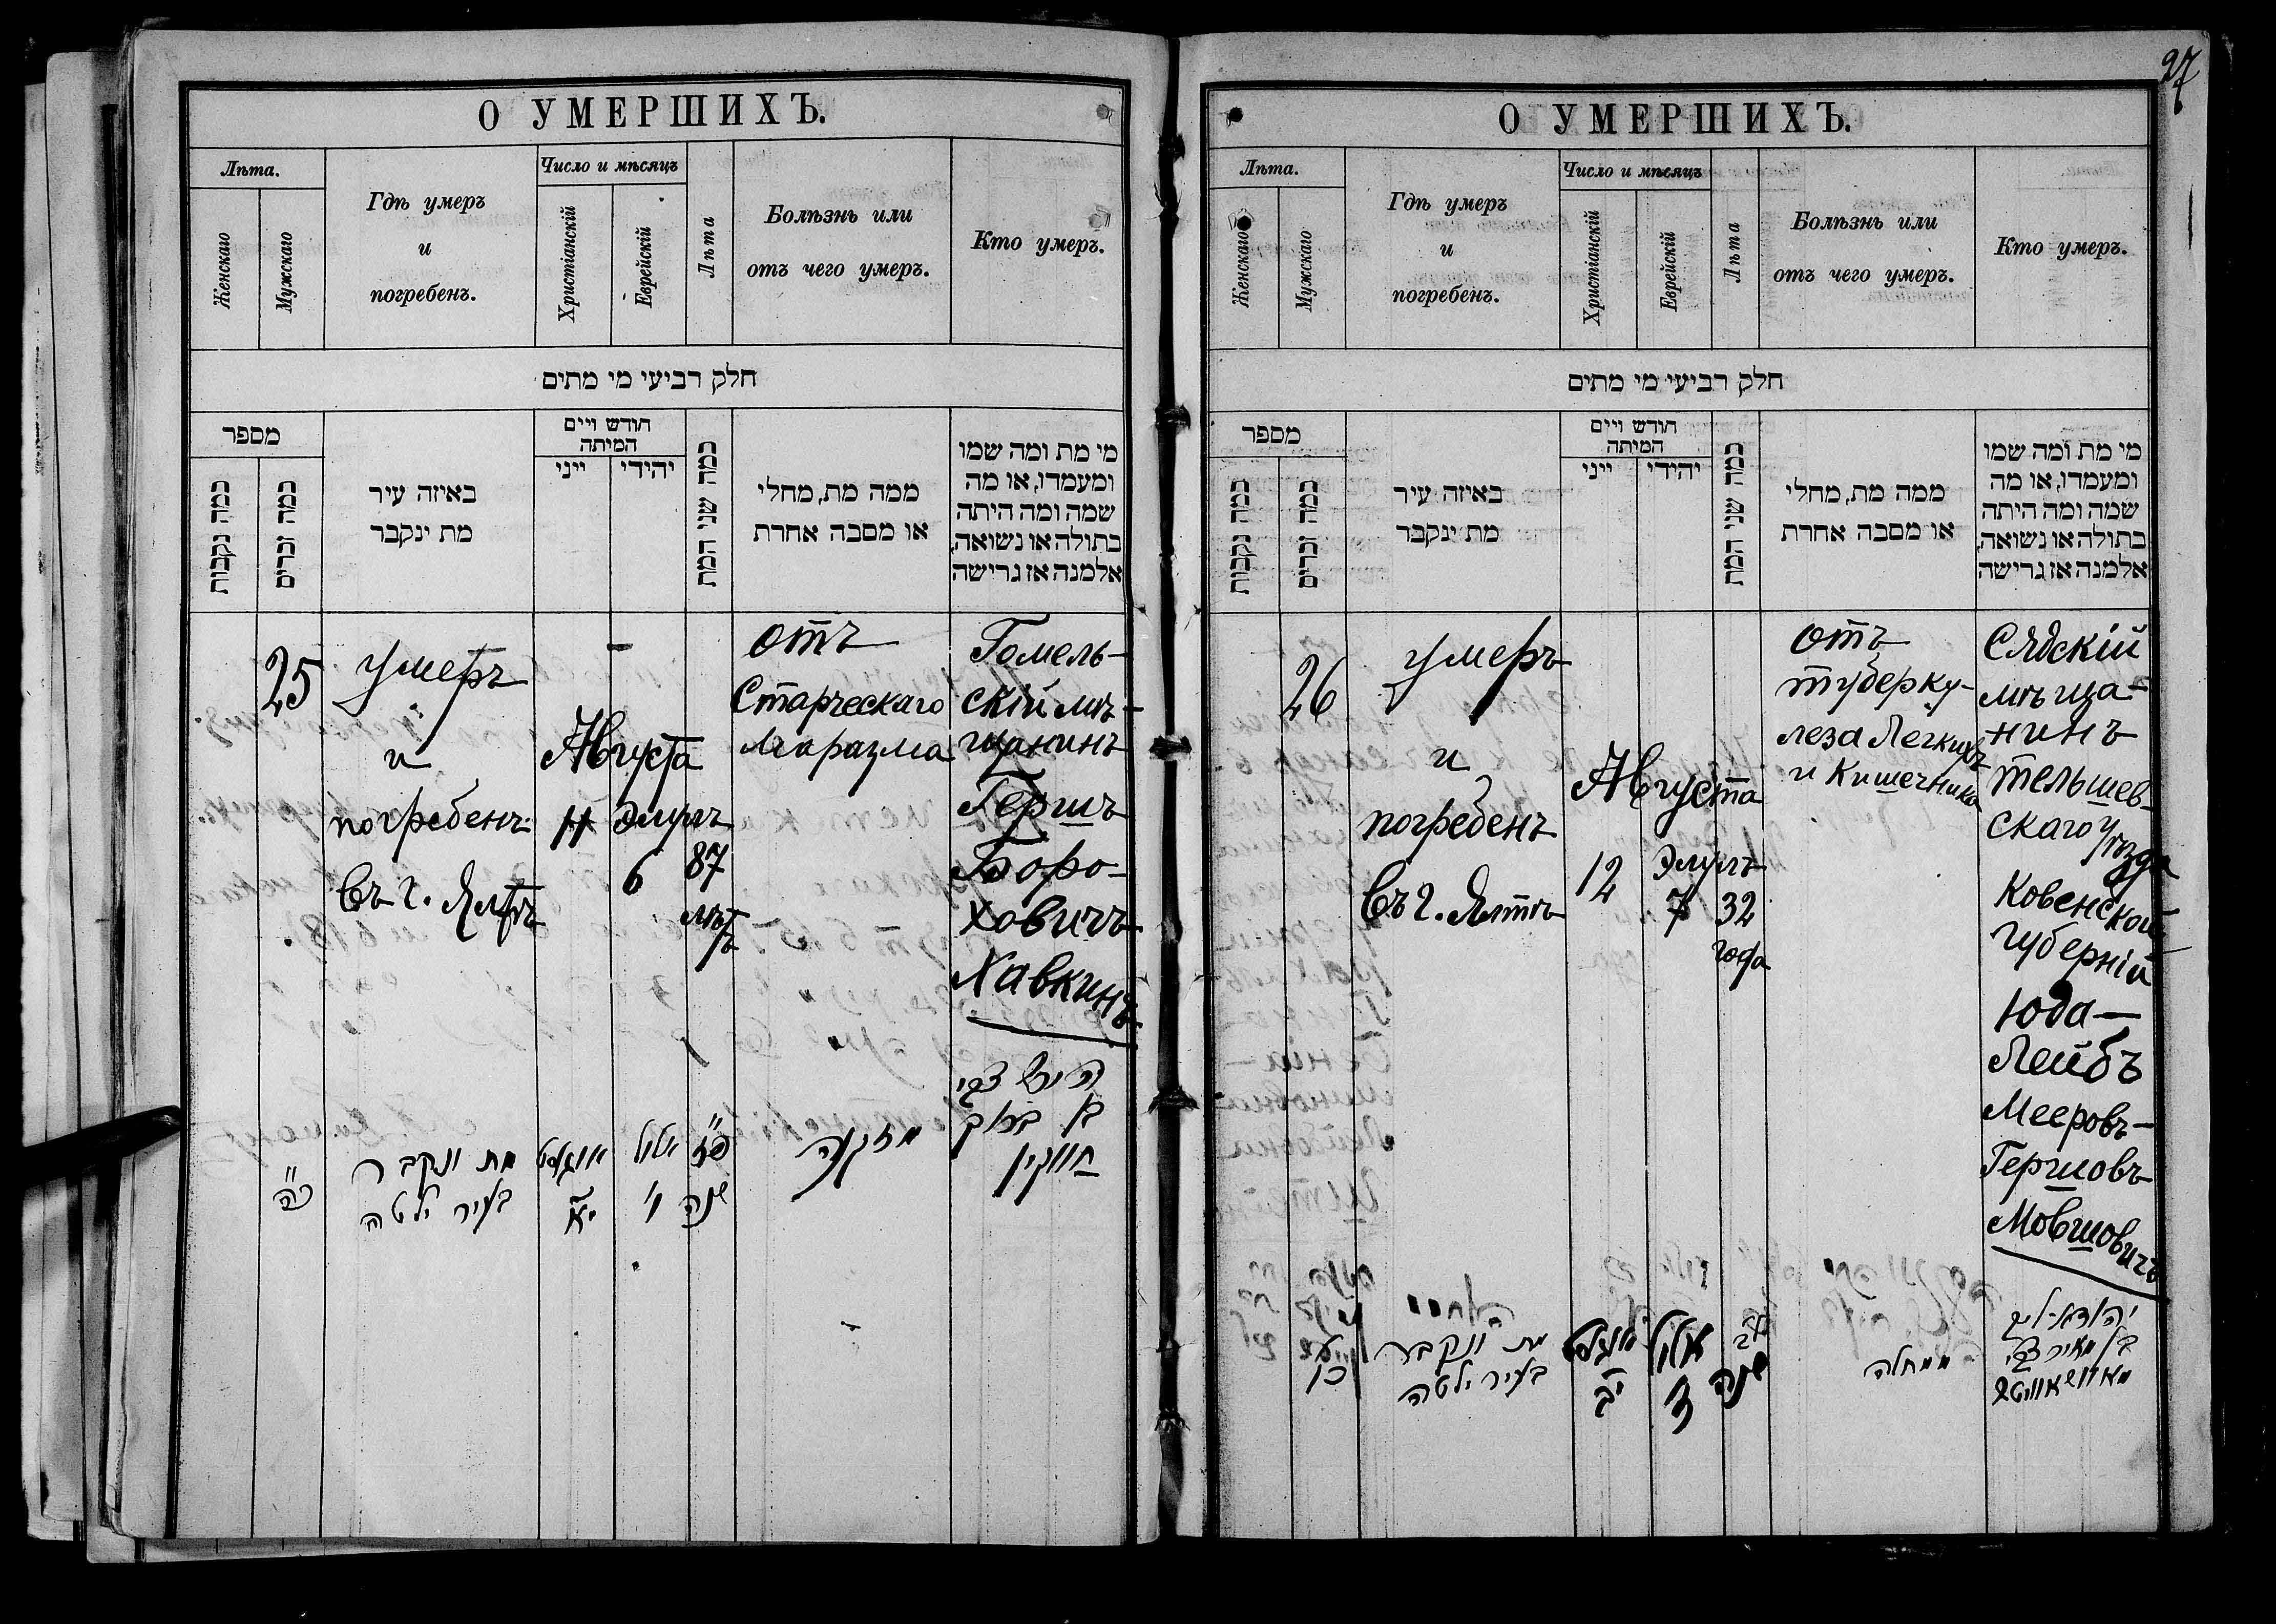 О УМЕРШИХЪ.
Лѣта.
Женскаго
Мужскаго
Гдѣ умеръ
и
погребенъ.
Число и мѣсяцъ
Христіанскій
Еврейскій
Лѣта
Болѣзнь или
отъ чего умеръ.
Кто умеръ.
חלק רביעי מי מתים
מספר
כמה נקבות
כמה זכרים
באיזה עיר
מת ינקבר
חודש ויים
המיתה
ייני
יהידי
כמה שני המת
ממה מת, מחלי
או מסבה אחרת
מי מת ומה שמו
ומעמדו, או מה
שמה ומה היתה
בתולה או נשואה,
אלמנה אז גרישה
25
умеръ
и
погребенъ
въ г. Ялтѣ
Августа
11
Элулъ
6
87
лѣтъ
отъ
Старческаго
Маразма
Гомель-
скій мѣ-
щанинъ
Гершъ
Боро-
ховичъ
Хавкинъ
כה
מת ונקבר
בעיר ילטה
אוגוסט
יא
אלול
ו'
פז
שנה
מזקנה
הירש צבי
בן ברוך
חווקין
27
О УМЕРШИХЪ.
Лѣта.
Женскаго
Мужскаго
Гдѣ умеръ
и
погребенъ.
Число и мѣсяцъ
Христіанскій
Еврейскій
Лѣта
Болѣзнь или
отъ чего умеръ.
Кто умеръ.
חלק רביעי מי מתים
מספר
כמה נקבות
כמה זכרים
באיזה עיר
מת ינקבר
חודש ויים
המיתה
ייני
יהידי
כמה שני המת
ממה מת, מחלי
או מסבה אחרת
מי מת ומה שמו
ומעמדו, או מה
שמה ומה היתה
בתולה או נשואה,
אלמנה אז גרישה
26
умеръ
и
погребенъ
въ г. Ялтѣ
Августа
12
Элулъ
7
32
года
отъ
туберку-
леза Легкихъ
и Кишечника
Сядскій
мѣща-
нинъ
тельшев-
скаго уѣзда
Ковенской
губерній
Юда-
Лейбъ
Мееровъ-
Гершовъ
Мовшовичъ
כו
מת ונקבר
בעיר ילטה
אוגוסט
יב
אלול
ז
לב
שנה
ממחלה
יהודא-ליב
בן מאיר צבי
מאוושאוויטש